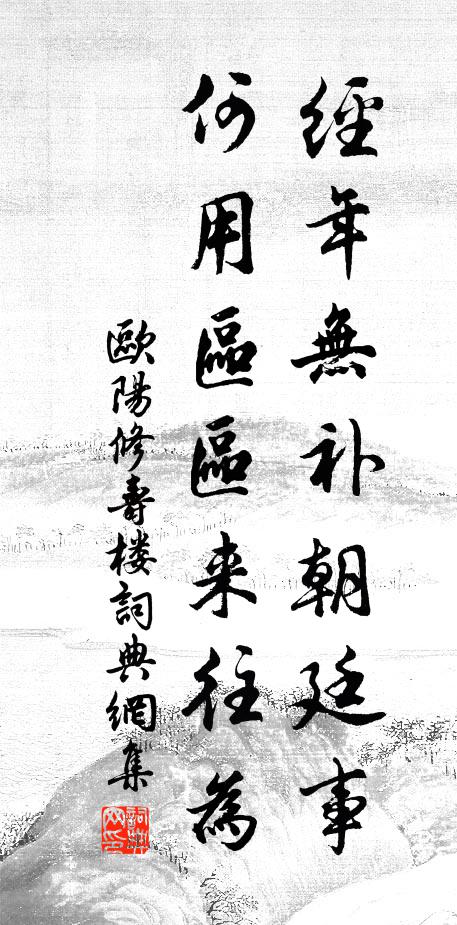 經年無补朝廷事
何用區區来往為
歐陽修壽楼詞典網集